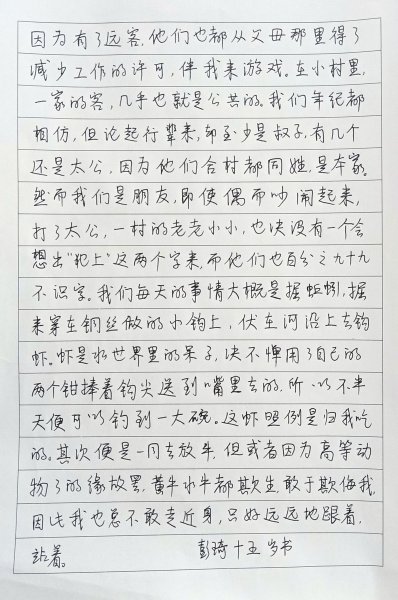 因为有了远客，他们也都从父母那里得了
减少工作的许可，伴我来游戏。在小村里，
一家的客，几乎也就是公共的。我们年纪都
相仿，但论起行辈来，却至少是叔子，有几个
还是太公，因为他们合村都同姓，是本家。
然而我们是朋友，即使偶而吵闹起来，
打了太公，一村的老老小小，也决没有一个会
想出“犯上”这两个字来，而他们也百分之九十九
不识字。我们每天的事情大概是掘蚯蚓，掘
来穿在铜丝做的小钩上，伏在河沿上去钓
虾。虾是水世界里的呆子，决不惮用了自己的
两个钳捧着钩尖送到嘴里去的，所以不半
天便可以钓到一大碗。这虾照例是归我吃
的。其次便是一同去放牛，但或者因为高等动
物了的缘故罢，黄牛水牛都欺生，敢于欺侮我，
因此我也总不敢走近身，只好远远地跟着，
站着。 彭琦十五岁书